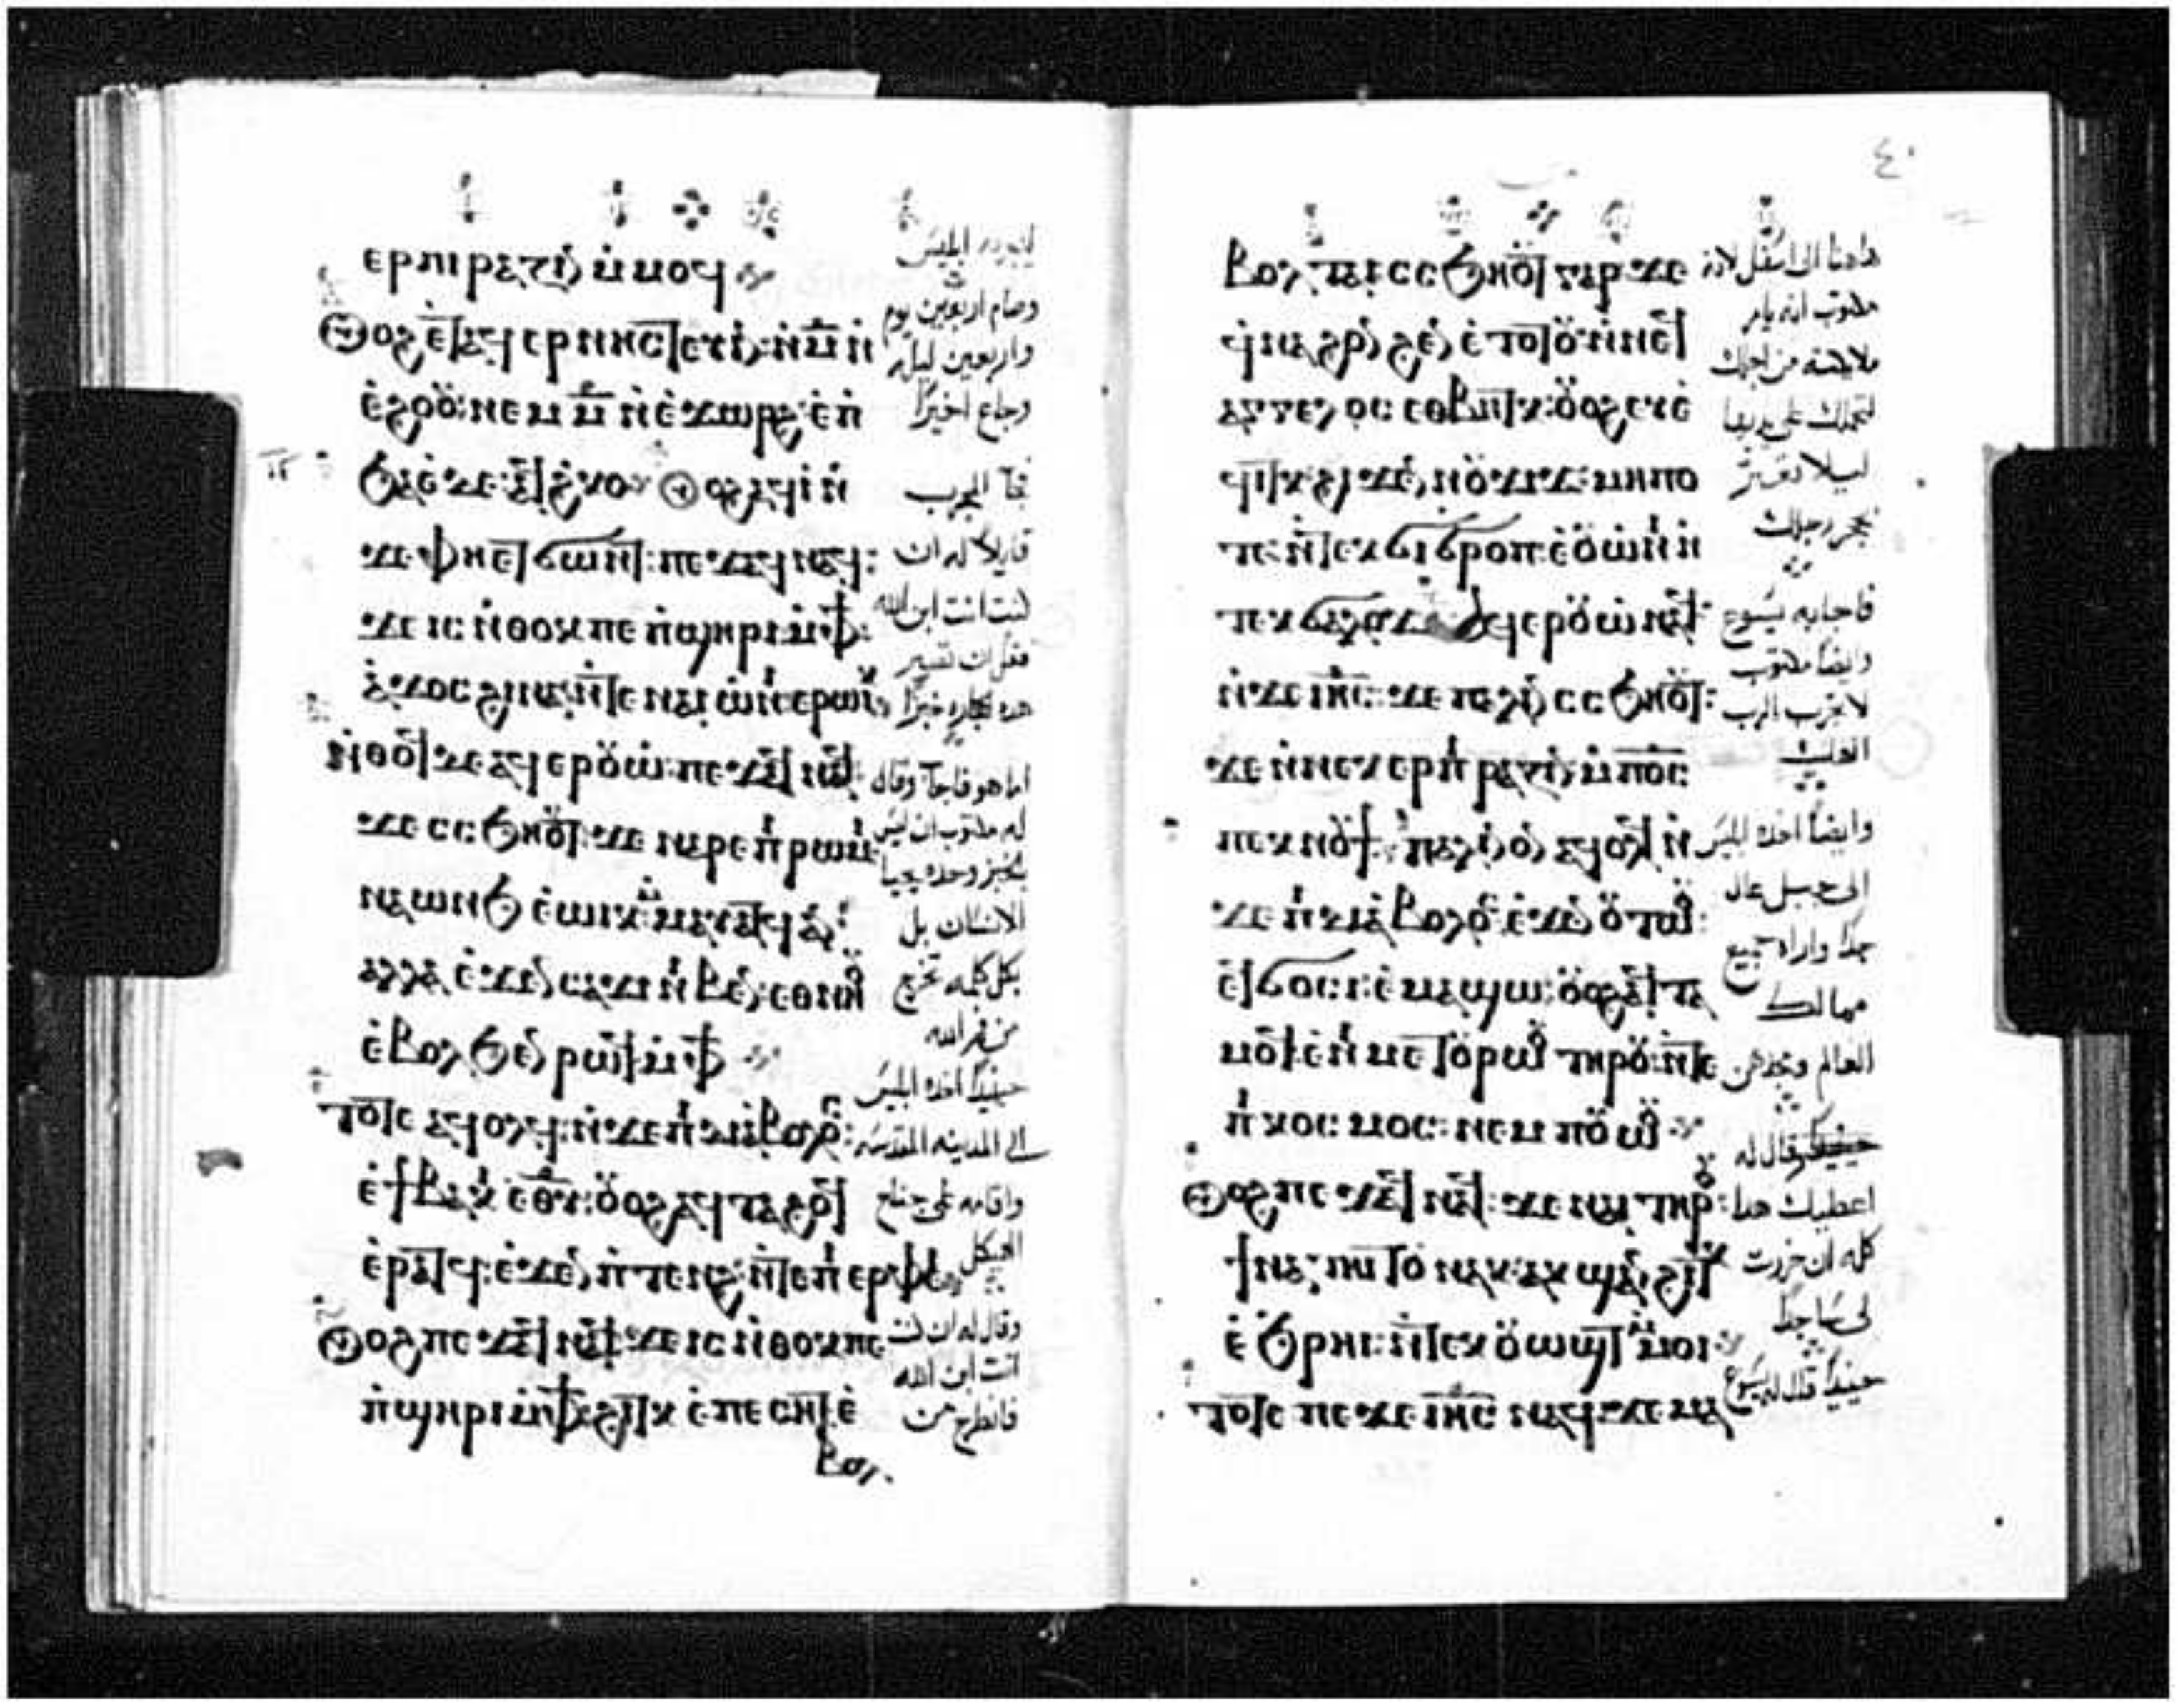 ⲉⲣⲡⲓⲣⲁⲍⲓⲛ ⲙⲙⲟϥ
ⲟⲩⲟϩ ⲉⲧⲁϥⲉⲣⲛⲏⲥⲧⲉⲩⲓⲛ ⲛⲙ̅ ⲛ
ⲉϩⲟⲟⲩ ⲛⲉⲙ ⲙ̅ ⲛⲉϫⲱⲣϩ ⲉⲡ
ϧⲁⲉ ⲇⲉ ⲁϥϩⲕⲟ ⲟⲩⲟϩ ⲁϥⲓ ⲛ
ϫⲉ ⲫⲏ ⲉⲧϭⲱⲛⲧ ⲡⲉϫⲁϥ ⲛⲁϥ
ϫⲉ ⲓⲥ ⲛⲑⲟⲕ ⲡⲉ ⲡϣⲏⲣⲓ ⲙⲫϯ
ⲁϫⲟⲥ ϩⲓⲛⲁ ⲛⲧⲉ ⲛⲁⲓ ⲱⲛⲓ ⲉⲣⲱⲓⲕ
ⲛⲑⲟϥ ⲇⲉ ⲁϥⲉⲣⲟⲩⲱ ⲡⲉϫⲁϥ ⲛⲁϥ
ϫⲉ ⲥⲥϧⲏⲟⲩⲧ ϫⲉ ⲛⲁⲣⲉ ⲡⲣⲱⲙⲓ
ⲛⲁⲱⲛϧ ⲉⲱⲓⲕ ⲙⲙⲁⲩⲁⲧϥ ⲁⲛ
ⲁⲗⲗⲁ ⲉϫⲉⲛ ⲥⲁϫⲓ ⲛⲓⲃⲉⲛ ⲉⲑⲛⲏⲟⲩ
ⲉⲃⲟⲗ ϧⲉⲛ ⲣⲱϥ ⲙⲫϯ
ⲧⲟⲧⲉ ⲁϥⲟⲗϥ ⲛϫⲉ ⲡⲇⲓⲁⲃⲟⲗⲟⲥ
ⲉϯⲃⲁⲕⲓ ⲉⲑⲩ̅ ⲟⲩⲟϩ ⲁϥⲧⲁϩⲟϥ
ⲉⲣⲁⲧϥ ⲉϫⲉⲛ ⲡⲧⲉⲛϩ ⲛⲧⲉ ⲡⲉⲣⲫⲉⲓ
ⲟⲩⲟϩ ⲡⲉϫⲁϥ ⲛⲁϥ ϫⲉ ⲓⲥ ⲛⲑⲟⲕ ⲡⲉ
ⲡϣⲏⲣⲓ ⲙⲫϯ ϩⲓⲧⲕ ⲉⲡⲉⲥⲏⲧ ⲉ
ⲃⲟⲗ
ليجربه ابليس
وصام اربعين يوم
واربعين ليله
وجاع اخيرًا
فجآ المجرب
قايلاً له ان
كنت انت ابن الله
فقل ان تصير
هذه الحجاره خبزًا
اما هو فاجآب وقال
له مكتوب ان ليس
بالخبز وحده يحيا
الانسان بل
بكل كلمه تخرج
من فم الله
حينيدًا اخده ابليس
الى المدينه المقدسه
واقامه على جناح
الهيكل
وقال له ان كنت
انت ابن الله
فانطرح من
٤٠
ⲃⲟⲗ ⲧⲁⲓ ⲥⲥϧⲏⲟⲩⲧ ⲅⲁⲣ ϫⲉ
ϥⲛⲁϩⲟⲛϩⲉⲛ ⲉⲧⲟⲧⲟⲩ ⲛⲛⲉϥ
ⲁⲅⲅⲉⲗⲟⲥ ⲉⲑⲃⲏⲧⲕ ⲟⲩⲟϩ ⲉⲩⲉ
ϥⲓⲧⲕ ϩⲓϫⲉⲛ ⲛⲟⲩϫⲓϫ ⲙⲏⲡⲟ
ⲧⲉ ⲛⲧⲉⲕϭⲓϭⲣⲟⲡ ⲉⲟⲩⲱⲛⲓ ⲛ
ⲧⲉⲕϭⲁⲗⲟϫ ⲁϥⲉⲣⲟⲩⲱ ⲛⲁϥ
ⲛϫⲉ ⲓⲏⲥ ϫⲉ ⲡⲁⲗⲓⲛ ⲥⲥϧⲏⲟⲩⲧ
ϫⲉ ⲛⲛⲉⲕⲉⲣⲡⲓⲣⲁⲍⲓⲛ ⲙⲡⲟ̅ⲥ
ⲡⲉⲕⲛⲟⲩϯ ⲡⲁⲗⲓⲛ ⲟⲛ ⲁϥⲟⲗϥ ⲛ
ϫⲉ ⲡⲇⲓⲁⲃⲟⲗⲟⲥ ⲉϫⲉⲛ ⲟⲩⲧⲱⲟⲩ
ⲉϥϭⲟⲥⲓ ⲉⲙⲁϣⲱ ⲟⲩⲟϩ ⲁϥⲧⲁ
ⲙⲟϥ ⲉⲛⲓⲙⲉⲧⲟⲩⲣⲱⲟⲩ ⲧⲏⲣⲟⲩ ⲛⲧⲉ
ⲡⲓⲕⲟⲥⲙⲟⲥ ⲛⲉⲙ ⲡⲟⲩⲱⲟⲩ
ⲟⲩⲟϩ ⲡⲉϫⲁϥ ⲛⲁϥ ϫⲉ ⲛⲁⲓ ⲧⲏⲣⲟⲩ
ϯⲛⲁⲧⲏⲓⲧⲟⲩ ⲛⲁⲕ ⲁⲕϣⲁⲛϩⲓⲧⲕ
ⲉϧⲣⲏⲓ ⲛⲧⲉⲕⲟⲩⲱϣⲧ ⲙⲙⲟⲓ
ⲧⲟⲧⲉ ⲡⲉϫⲉ ⲓⲏⲥ ⲛⲁϥ ϫⲉ ⲙⲁ
هاهنا الى اسفل لانه
مكتوب انه يامر
ملايكته من اجلك
لتحملك على يديها
ليلا تعتر
بحجر رجلك
فاجابه يسوع
وايضًا مكتوب
لا تجرب الرب
الهك
وايضًا اخده ابليس
الى جبل عال
جدًا واراه جميع
ممالك
العالم ومجدهن
وقال له
اعطيك هدا
كله ان خررت
لى ساجدًا
حينيدًا قال له يسوع